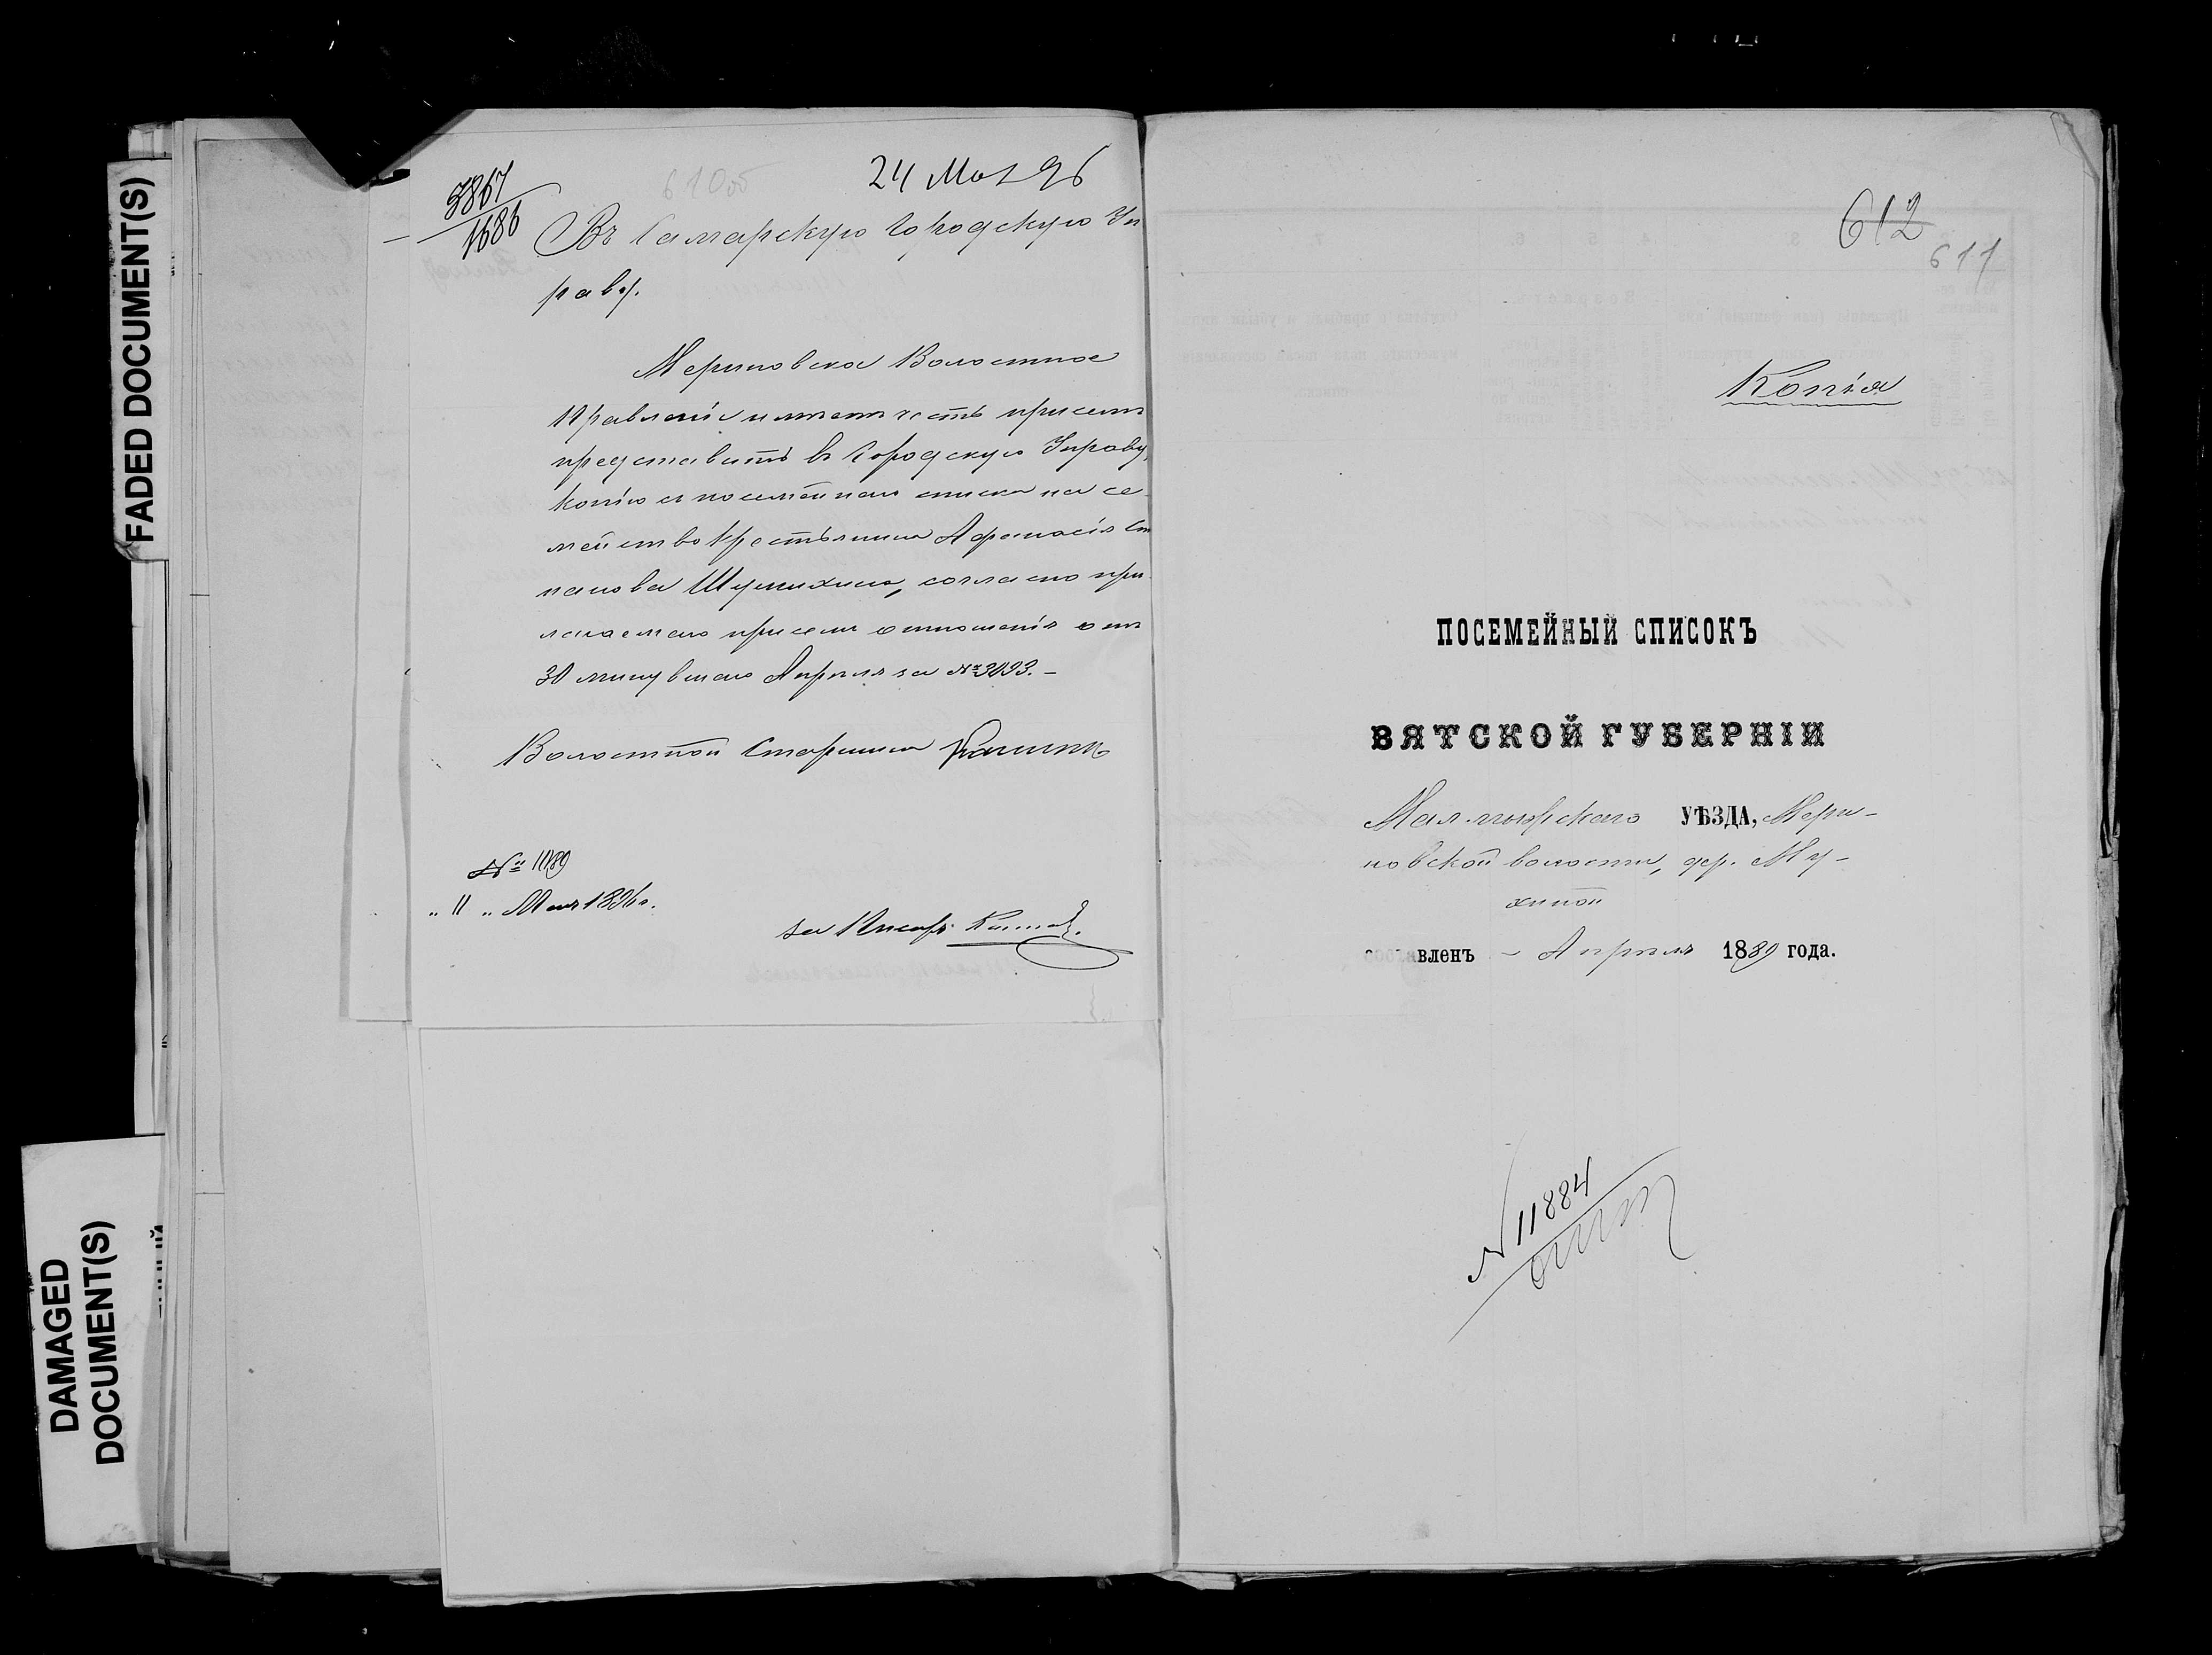 FADED DOCUMENT(S)
DAMAGED
DOCUMENT(S)
3867
1686
610об
24 Мая 96
Въ Самарскую Городскую Уп
раву.
Мериновское Волостное
Правленіе имѣетъ честь присемъ
представить въ Городскую Управу,
копію съ посемейнаго списка на се-
мейство крестьянина Афанасія Сте
панова Шумихина, согласно при-
лагаемаго присемъ отношенія отъ
30 минувшаго Апрѣля за №3093.-
Волостной Старшина
№ 1189
" 11 " Мая 1896 г.
за Писаря
612
611
Копія
ПОСЕМЕЙНЫЙ СПИСОКЪ
ВЯТСКОЙ ГУБЕРНІИ
Малмыжскаго УѢЗДА, Мери-
новской волости, дер. Му-
хиной
составленъ - Апрѣля 1889 года.
№ 11884